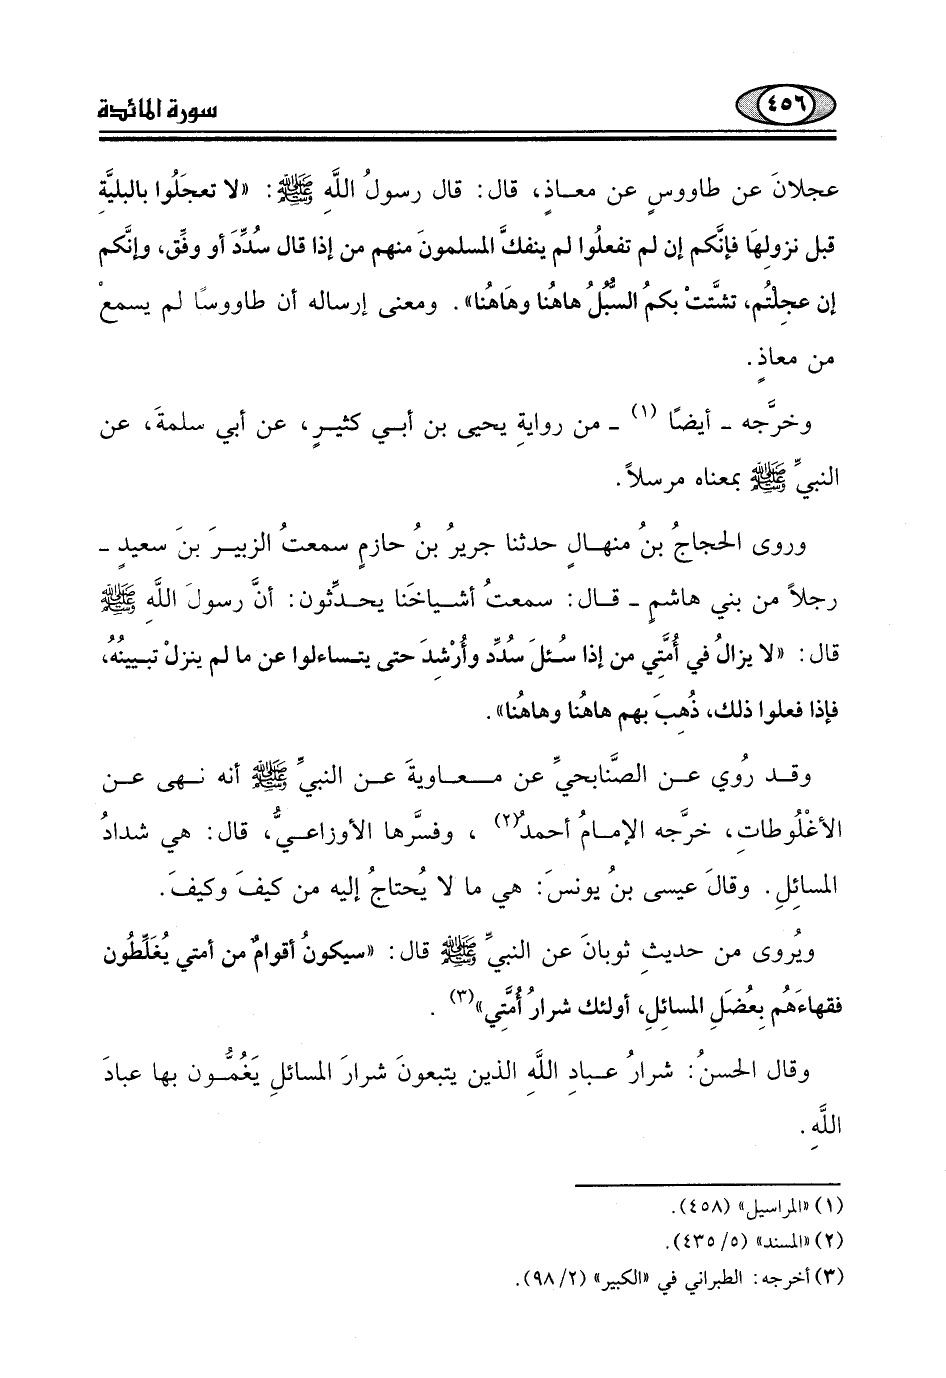 ٤٥٦
سورة المائدة
عجلانَ عن طاووسٍ عن معاذٍ، قال: قال رسولُ اللَّهِ ﷺ: «لا تعجَلُوا بالبليَّةِ
قبل نزولِهَا فإنَّكم إن لم تفعلُوا لم ينفكَّ المسلمونَ منهم من إذا قال سُدِّدَ أو وفِّق، وإنَّكم
إن عجلتُم، تشتَّتْ بكمُ السُّبُلُ هاهُنا وهَاهُنا». ومعنى إرساله أن طاووسًا لم يسمعْ
من معاذٍ.
وخرَّجه ـ أيضًا (١) ـ من روايةِ يحيى بن أبي كثيرٍ، عن أبي سلمةَ، عن
النبيِّ ﷺ بمعناه مرسلاً.
وروى الحجاجُ بنُ منهالٍ حدثنا جريرُ بنُ حازمٍ سمعتُ الزبيرَ بنَ سعيدٍ ـ
رجلاً من بني هاشمٍ ـ قال: سمعتُ أشياخَنا يحدِّثون: أنَّ رسولَ اللَّهِ ﷺ
قال: «لا يزالُ في أُمَّتِي من إذا سُئلَ سُدِّد وأُرْشِدَ حتى يتساءلوا عن ما لم ينزلْ تبيينُهُ،
فإذا فعلوا ذلك، ذُهِبَ بهم هاهُنا وهاهُنا».
وقد رُوي عن الصَّنابحيِّ عن معاويةَ عن النبيِّ ﷺ أنه نهى عن
الأغْلُوطاتِ، خرَّجه الإمامُ أحمدُ(٢) ، وفسَّرها الأوزاعيُّ، قال: هي شدادُ
المسائلِ. وقالَ عيسى بنُ يونسَ: هي ما لا يُحتاجُ إليه من كيفَ وكيفَ.
ويُروى من حديثِ ثوبانَ عن النبيِّ ﷺ قال: «سيكونُ أقوامٌ من أمتي يُغَلِّطُون
فقهاءَهُم بِعُضَلِ المسائلِ، أولئك شرارُ أُمَّتِي»(٣) .
وقال الحسنُ: شرارُ عبادِ اللَّهِ الذين يتبعونَ شرارَ المسائلِ يَغُمُّون بها عبادَ
اللَّهِ.
(١) «المراسيل» (٤٥٨).
(٢) «المسند» (٥/ ٤٣٥).
(٣) أخرجه: الطبراني في «الكبير» (٢/ ٩٨).